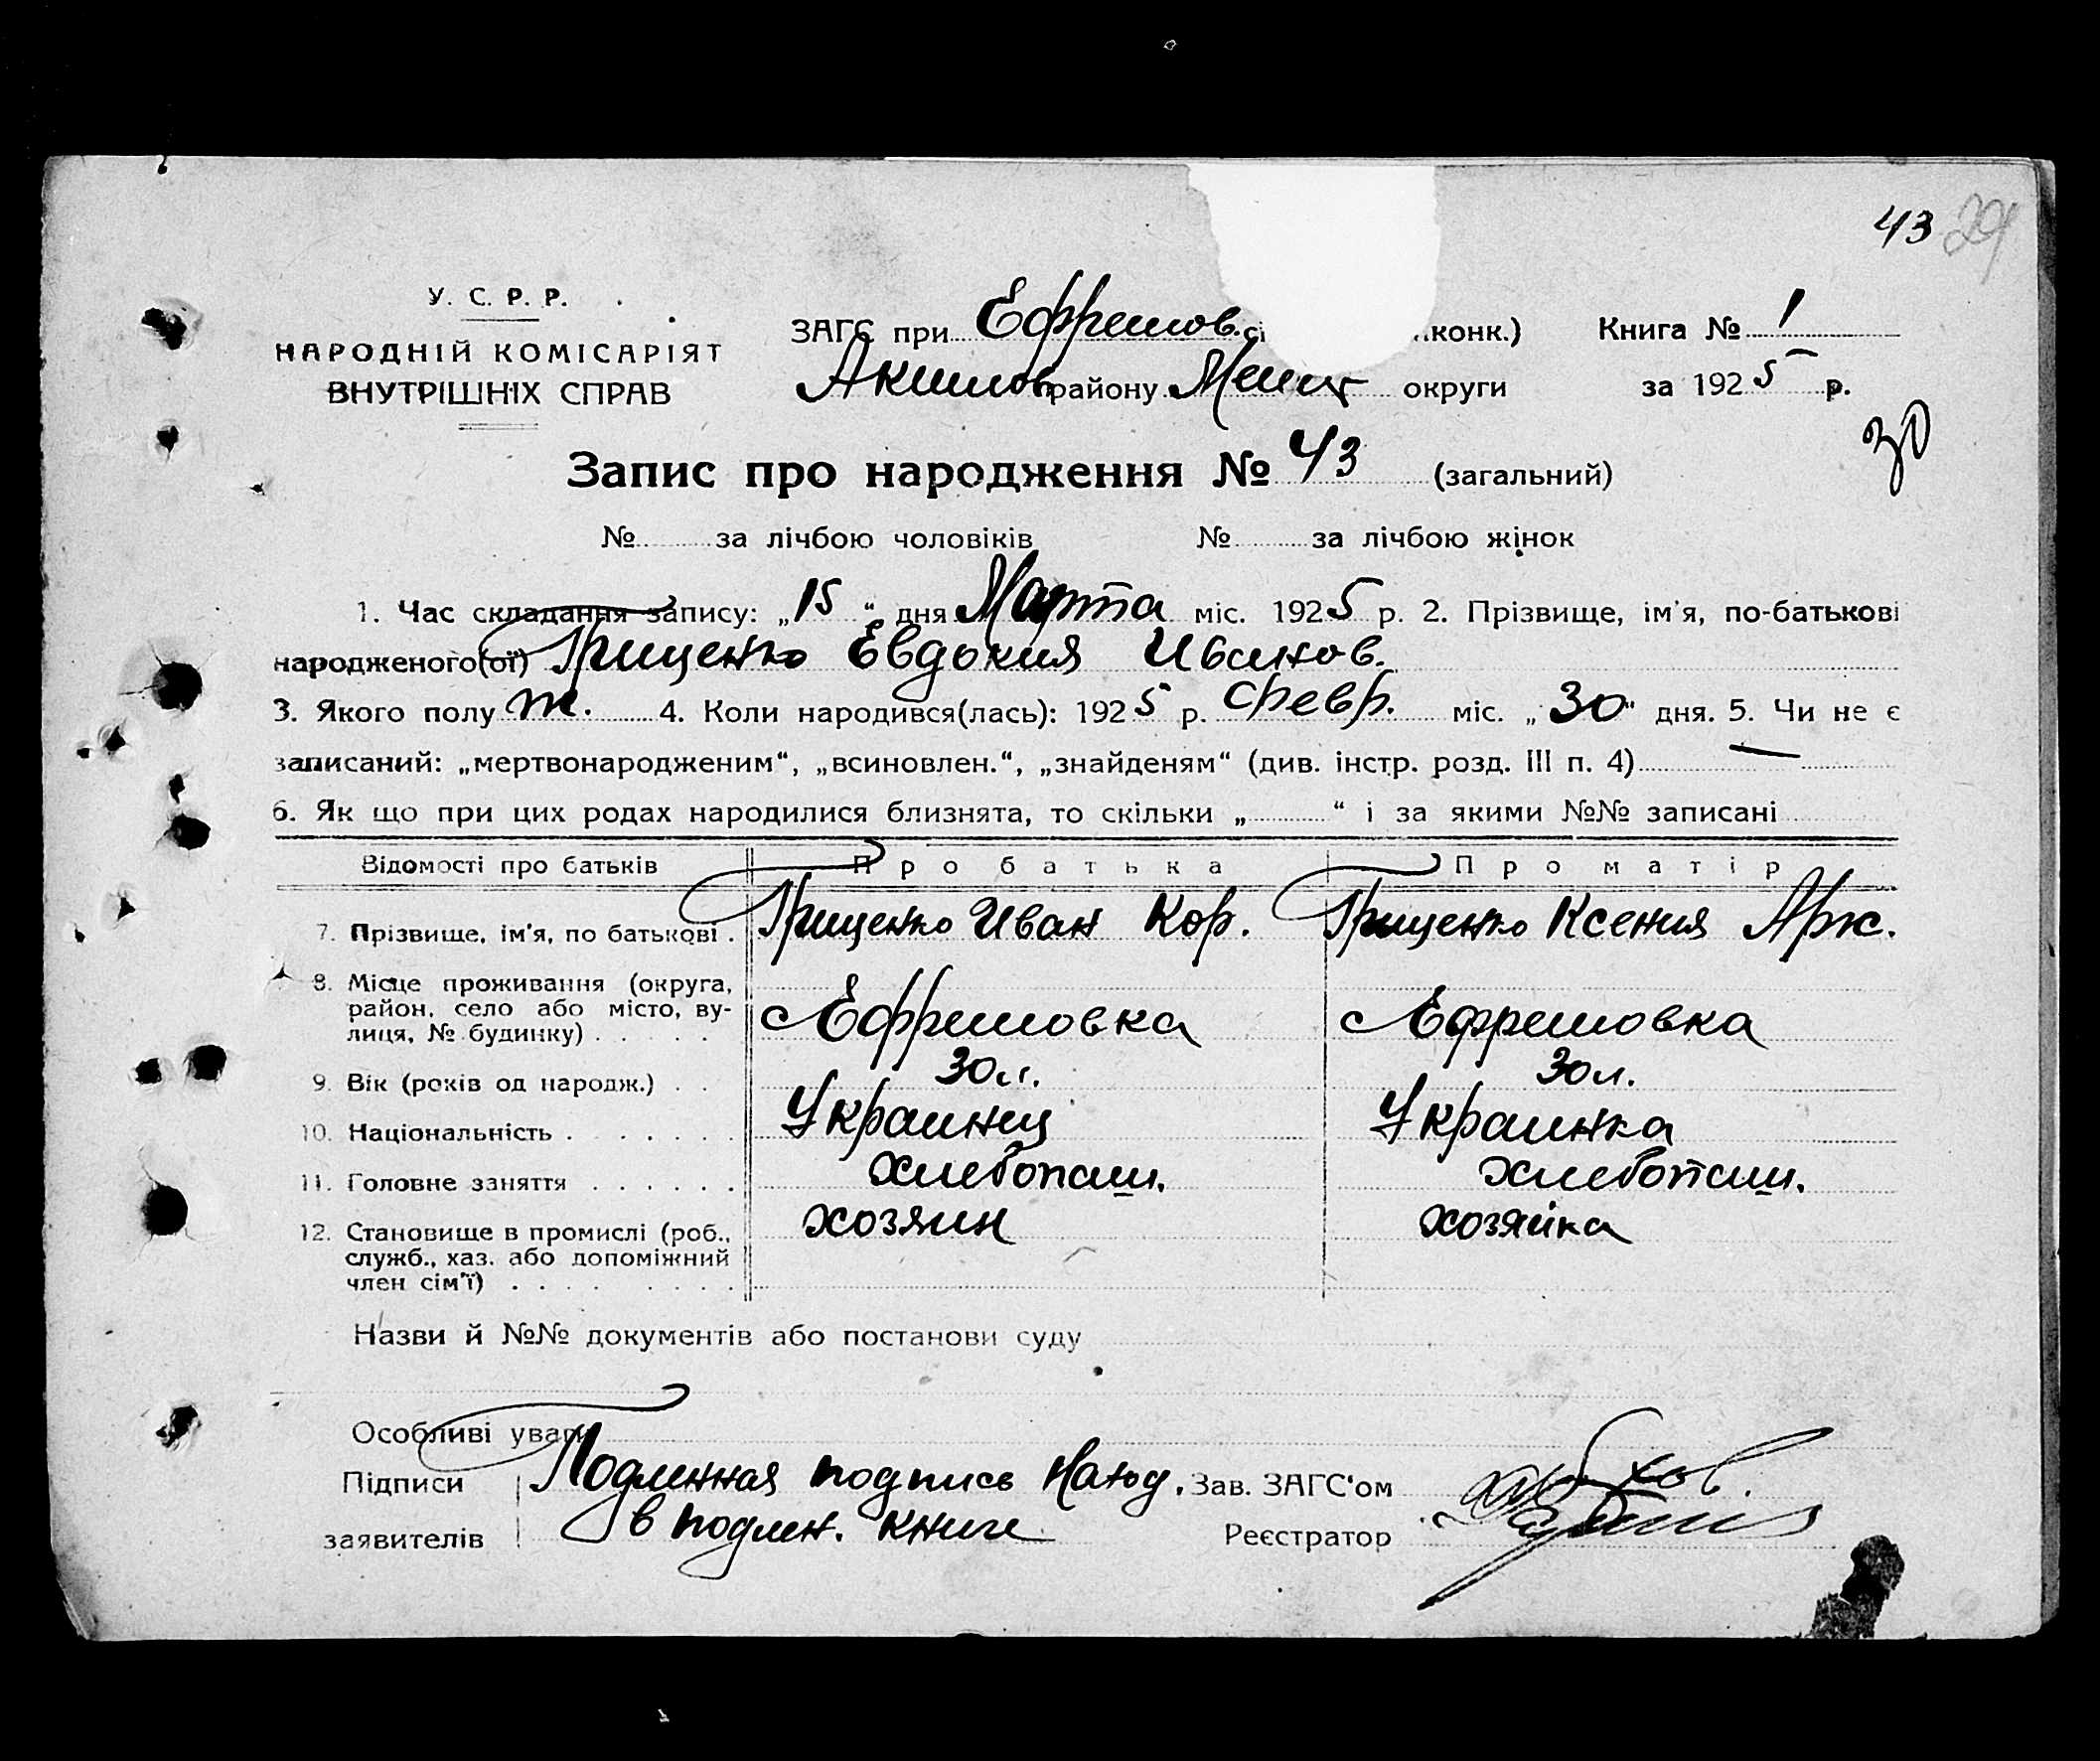 43 29
У. С. Р. Р.
НАРОДНІЙ КОМІСАРІЯТ
ВНУТРІШНІХ СПРАВ
ЗАГС при Ефремов. сі конк.)
Акимов району Мелит округи
Книга № 1
за 1925 р.
30
Запис про народження № 43 (загальний)
№ за лічбою чоловіків № за лічбою жінок
1. Час складання запису: „15“ дня Марта міс. 1925 р. 2. Прізвище, ім'я, по-батькові
народженого(ої) Грищенко Евдокия Иванов.
3. Якого полу ж. 4. Коли народився(лась): 1925 р. Февр. міс. „30“ дня. 5. Чи не є
записаний: „мертвонародженим“, „всиновлен.“, „знайденям“ (див. інстр. розд. III п. 4) —
6. Як що при цих родах народилися близнята, то скільки „ “ і за якими №№ записані
Відомості про батьків Про батька Про матір
7. Прізвище, ім'я, по батькові . Грищенко Иван Кор. Грищенко Ксения Арк.
8. Місце проживання (округа,
район, село або місто, ву-
лиця, № будинку) . . . . . с Ефремовка с Ефремовка
9. Вік (років од народж.) . . 30 л. 30 л.
10. Національність . . . . . . Украинец Украинка
11. Головне заняття . . . . . . хлебопаш. хлебопаш.
12. Становище в промислі (роб., хозяин хозяйка
служб., хаз. або допоміжний
член сім'ї) . . . . . . .
Назви й №№ документів або постанови суду
Особливі уваги
Підписи Подлинная подпись Наюд. Зав. ЗАГС'ом
заявителів в подлин. книге Реєстратор